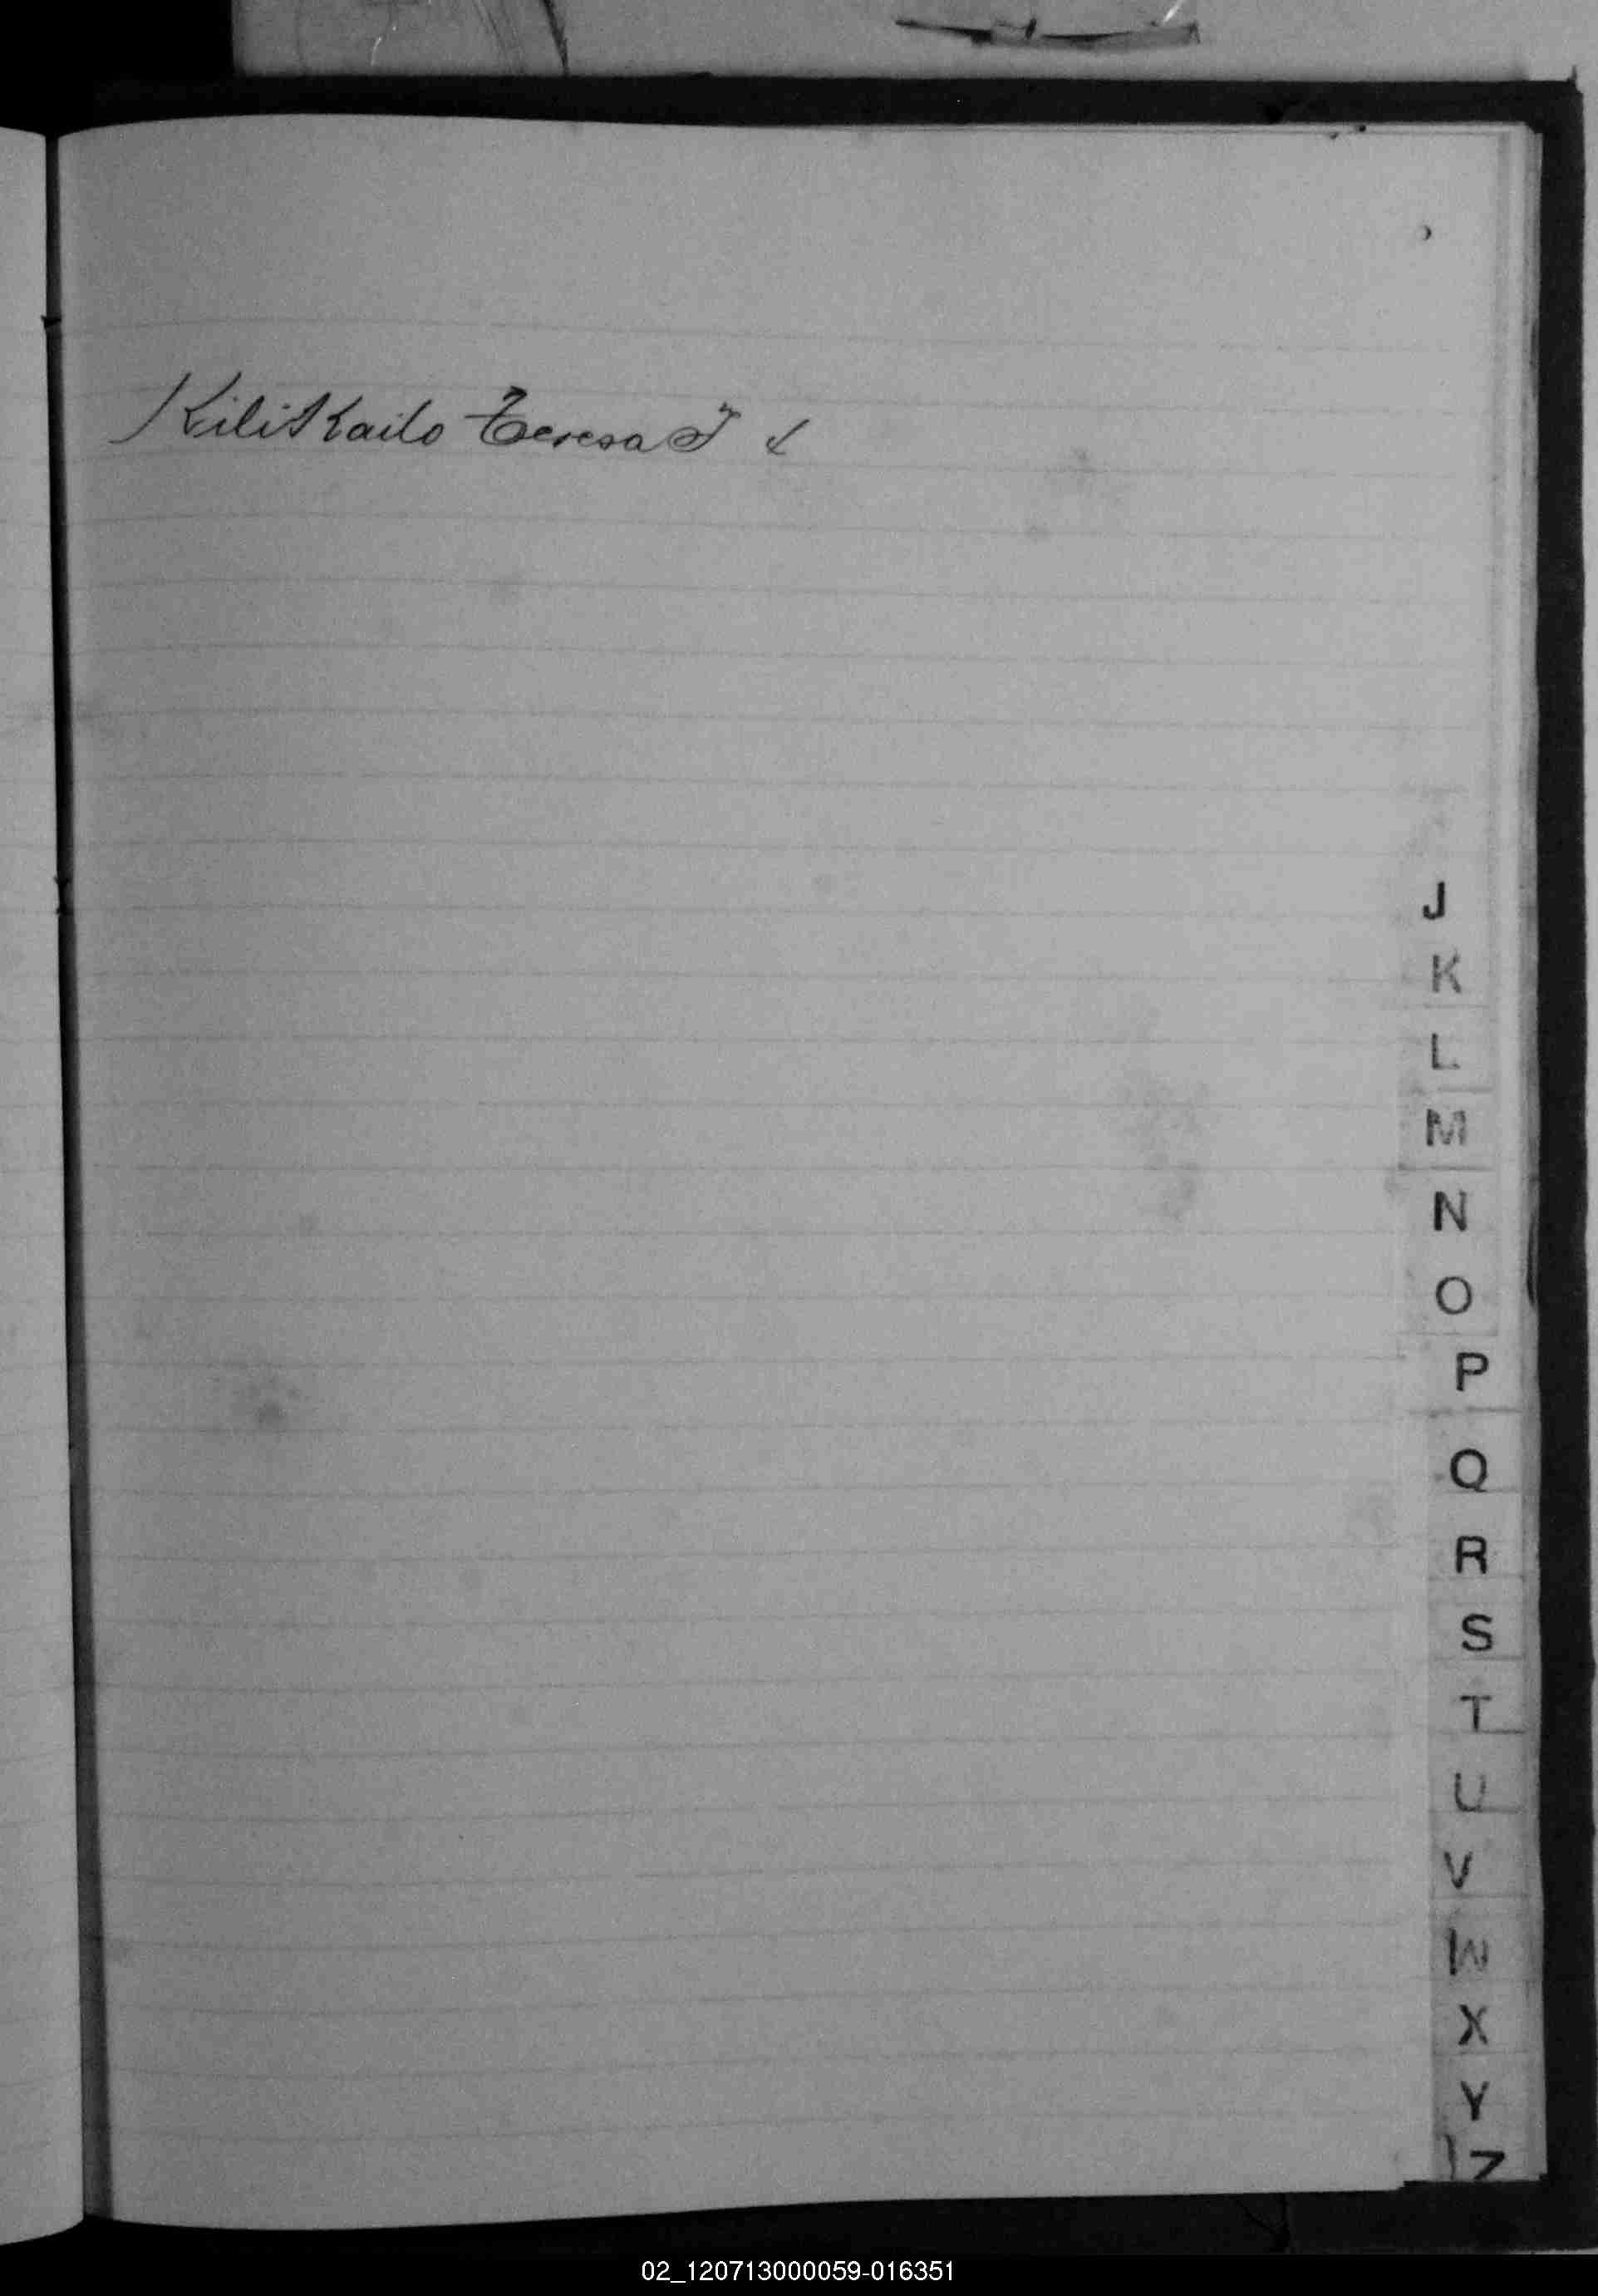 KiliKailo Teresa J
J
K
L
M
N
O
P
Q
R
S
T
U
V
W
X
Y
Z
02_120713000059-016351